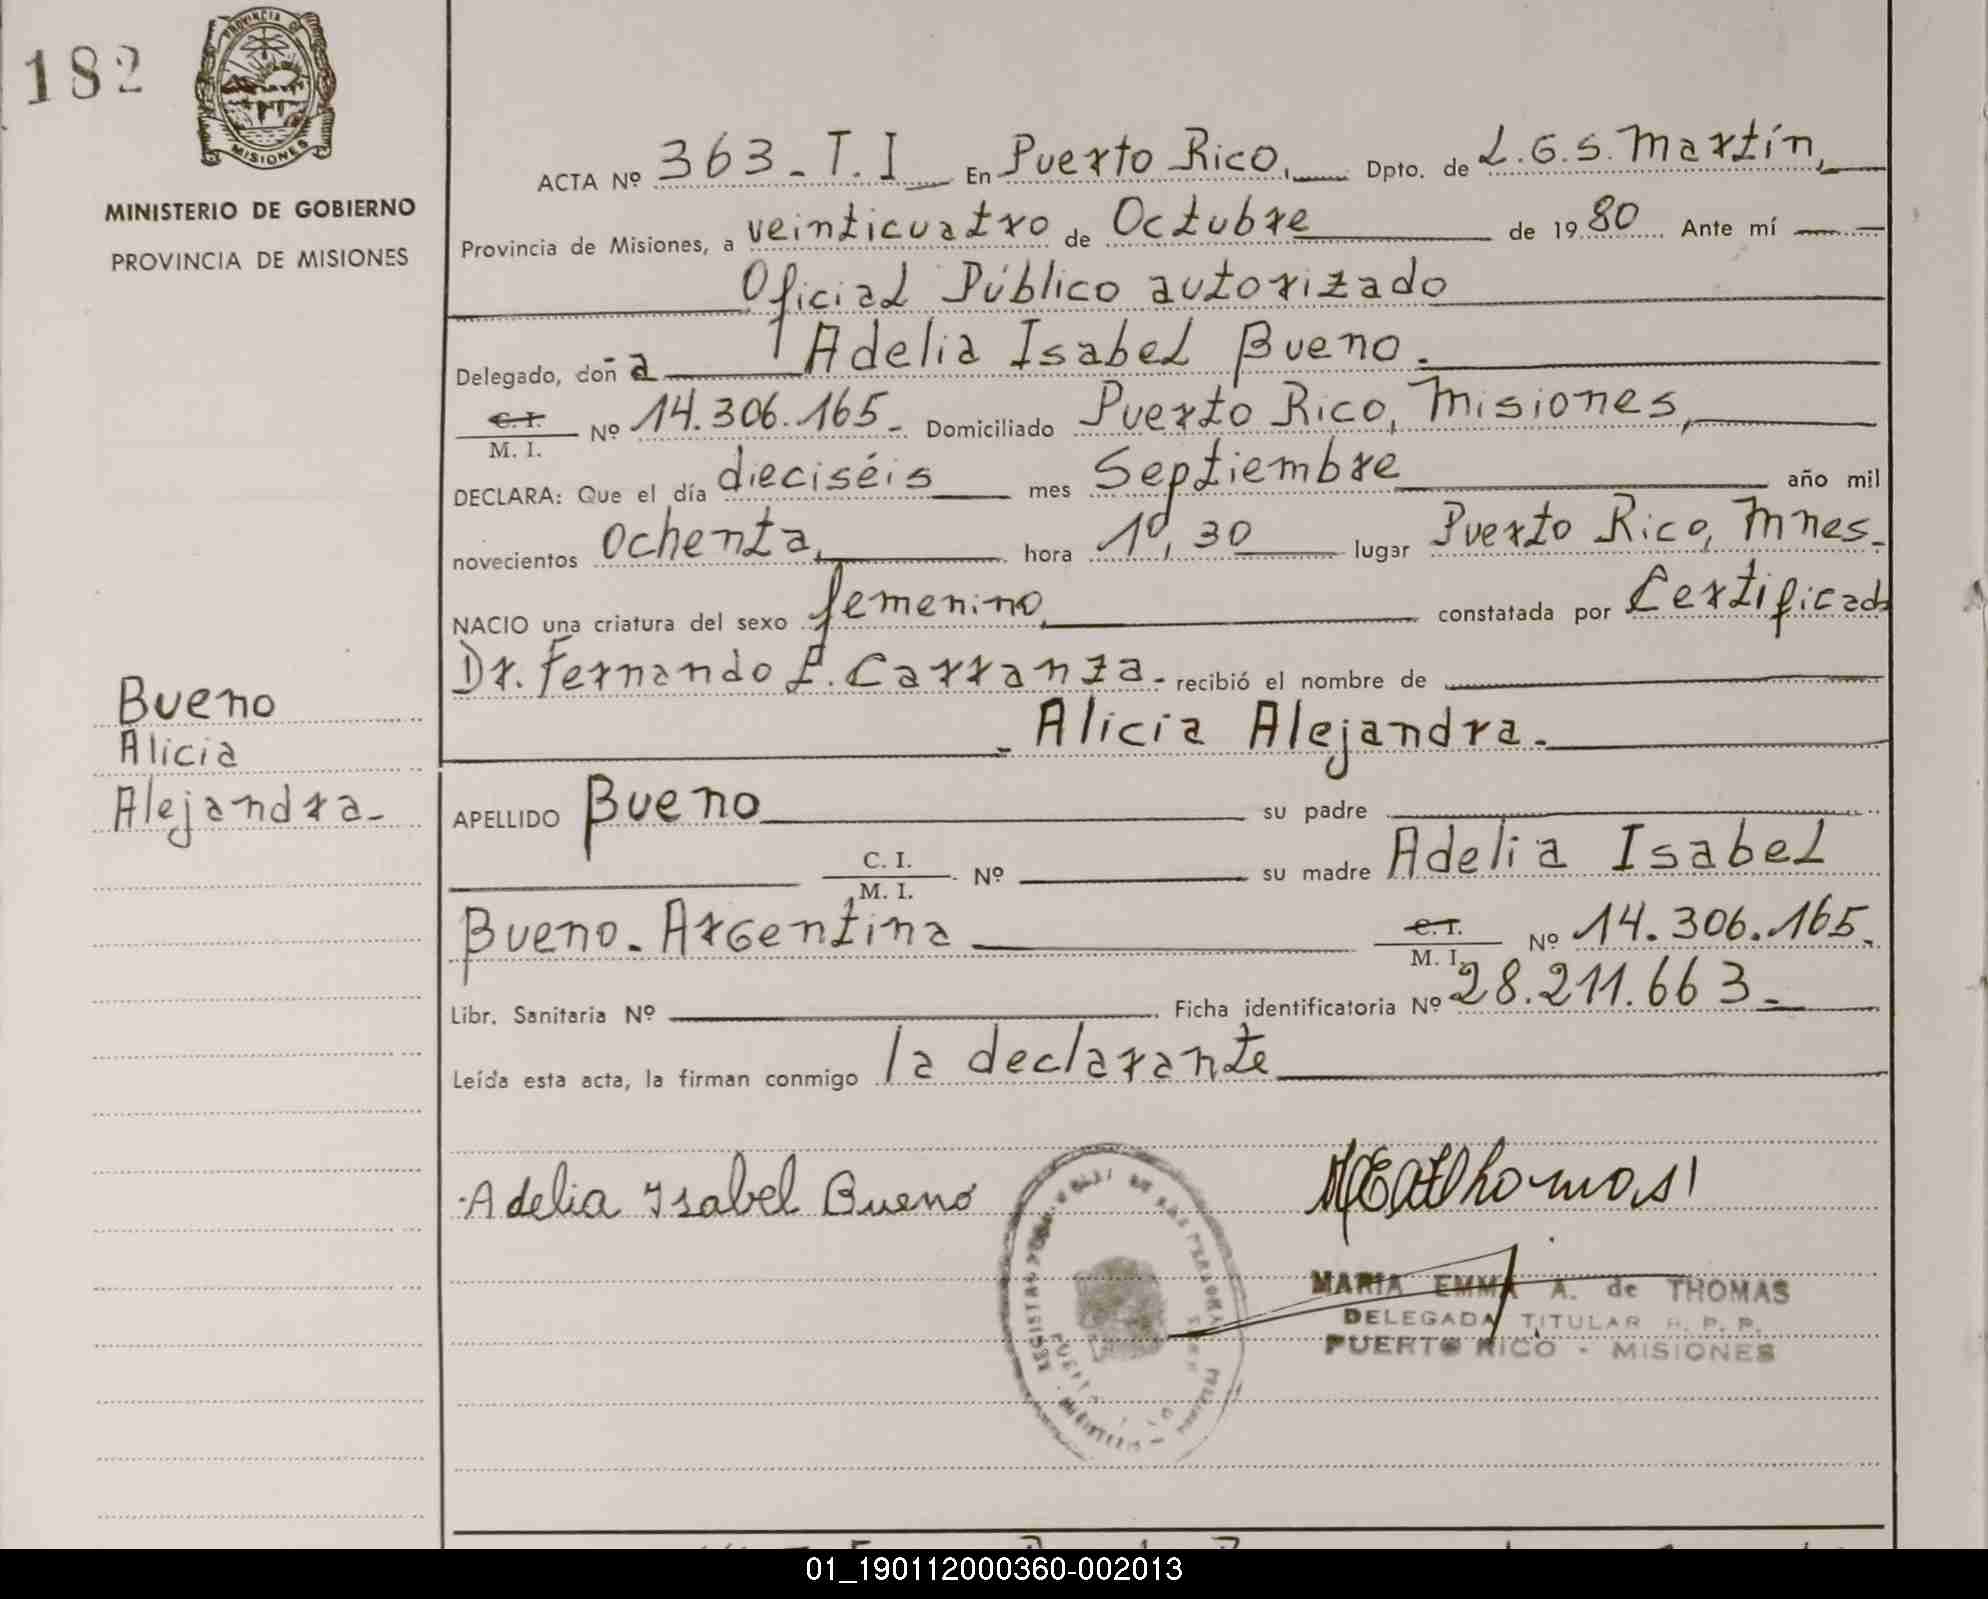 182
PROVINCIA DE
MISIONES
MINISTERIO DE GOBIERNO
PROVINCIA DE MISIONES
ACTA Nº 363-T.I En Puerto Rico, Dpto. de L.G.S.Martín,
Provincia de Misiones, a veinticuatro de Octubre de 1980 Ante mí
Oficial Público autorizado
Delegado, doña Adelia Isabel Bueno.
C.I.
M. I. Nº 14.306.165- Domiciliado Puerto Rico, Misiones,
DECLARA: Que el día dieciséis mes Septiembre año mil
novecientos ochenta, hora 10,30 lugar Puerto Rico, Mnes.
NACIO una criatura del sexo femenino, constatada por Certificado
Dr. Fernando E. Carranza- recibió el nombre de
- Alicia Alejandra-
Bueno
Alicia
Alejandra-
APELLIDO Bueno su padre
C. I.
M. I. Nº su madre Adelia Isabel
Bueno- Argentina C.I.
M. I. Nº 14.306.165.
Libr. Sanitaria Nº Ficha identificatoria Nº 28.211.663-
Leída esta acta, la firman conmigo la declarante
Adelia Isabel Bueno
MEAThomas
MARIA EMMA A. de THOMAS
DELEGADA TITULAR R. P. P.
PUERTO RICO - MISIONES
01_190112000360-002013